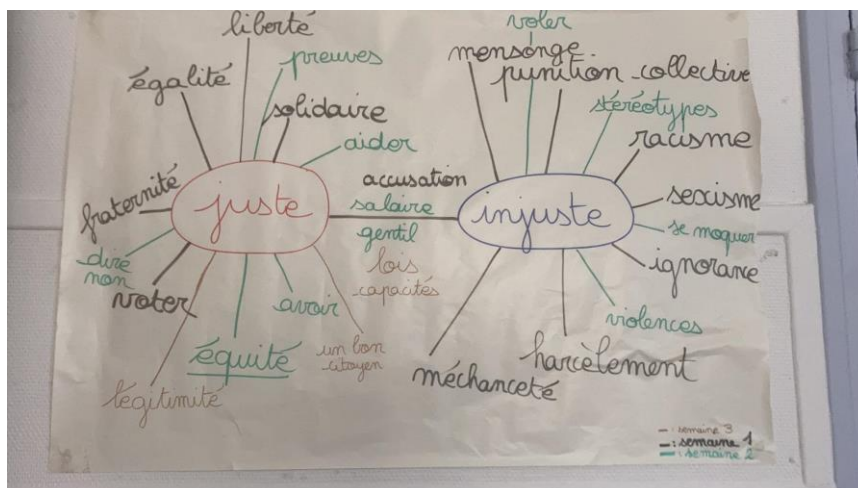 liberté
preuves
égalité
solidaire
aider
fraternité
juste
dire
non
voter
avoir
équité
un bon
citoyen
légitimité
accusation
salaire
gentil
lois
capacités
voler
mensonge
punition collective
stéréotypes
racisme
injuste
sexisme
se moquer
ignorance
violences
harcèlement
méchanceté
— : semaine 3
— : semaine 1
— : semaine 2